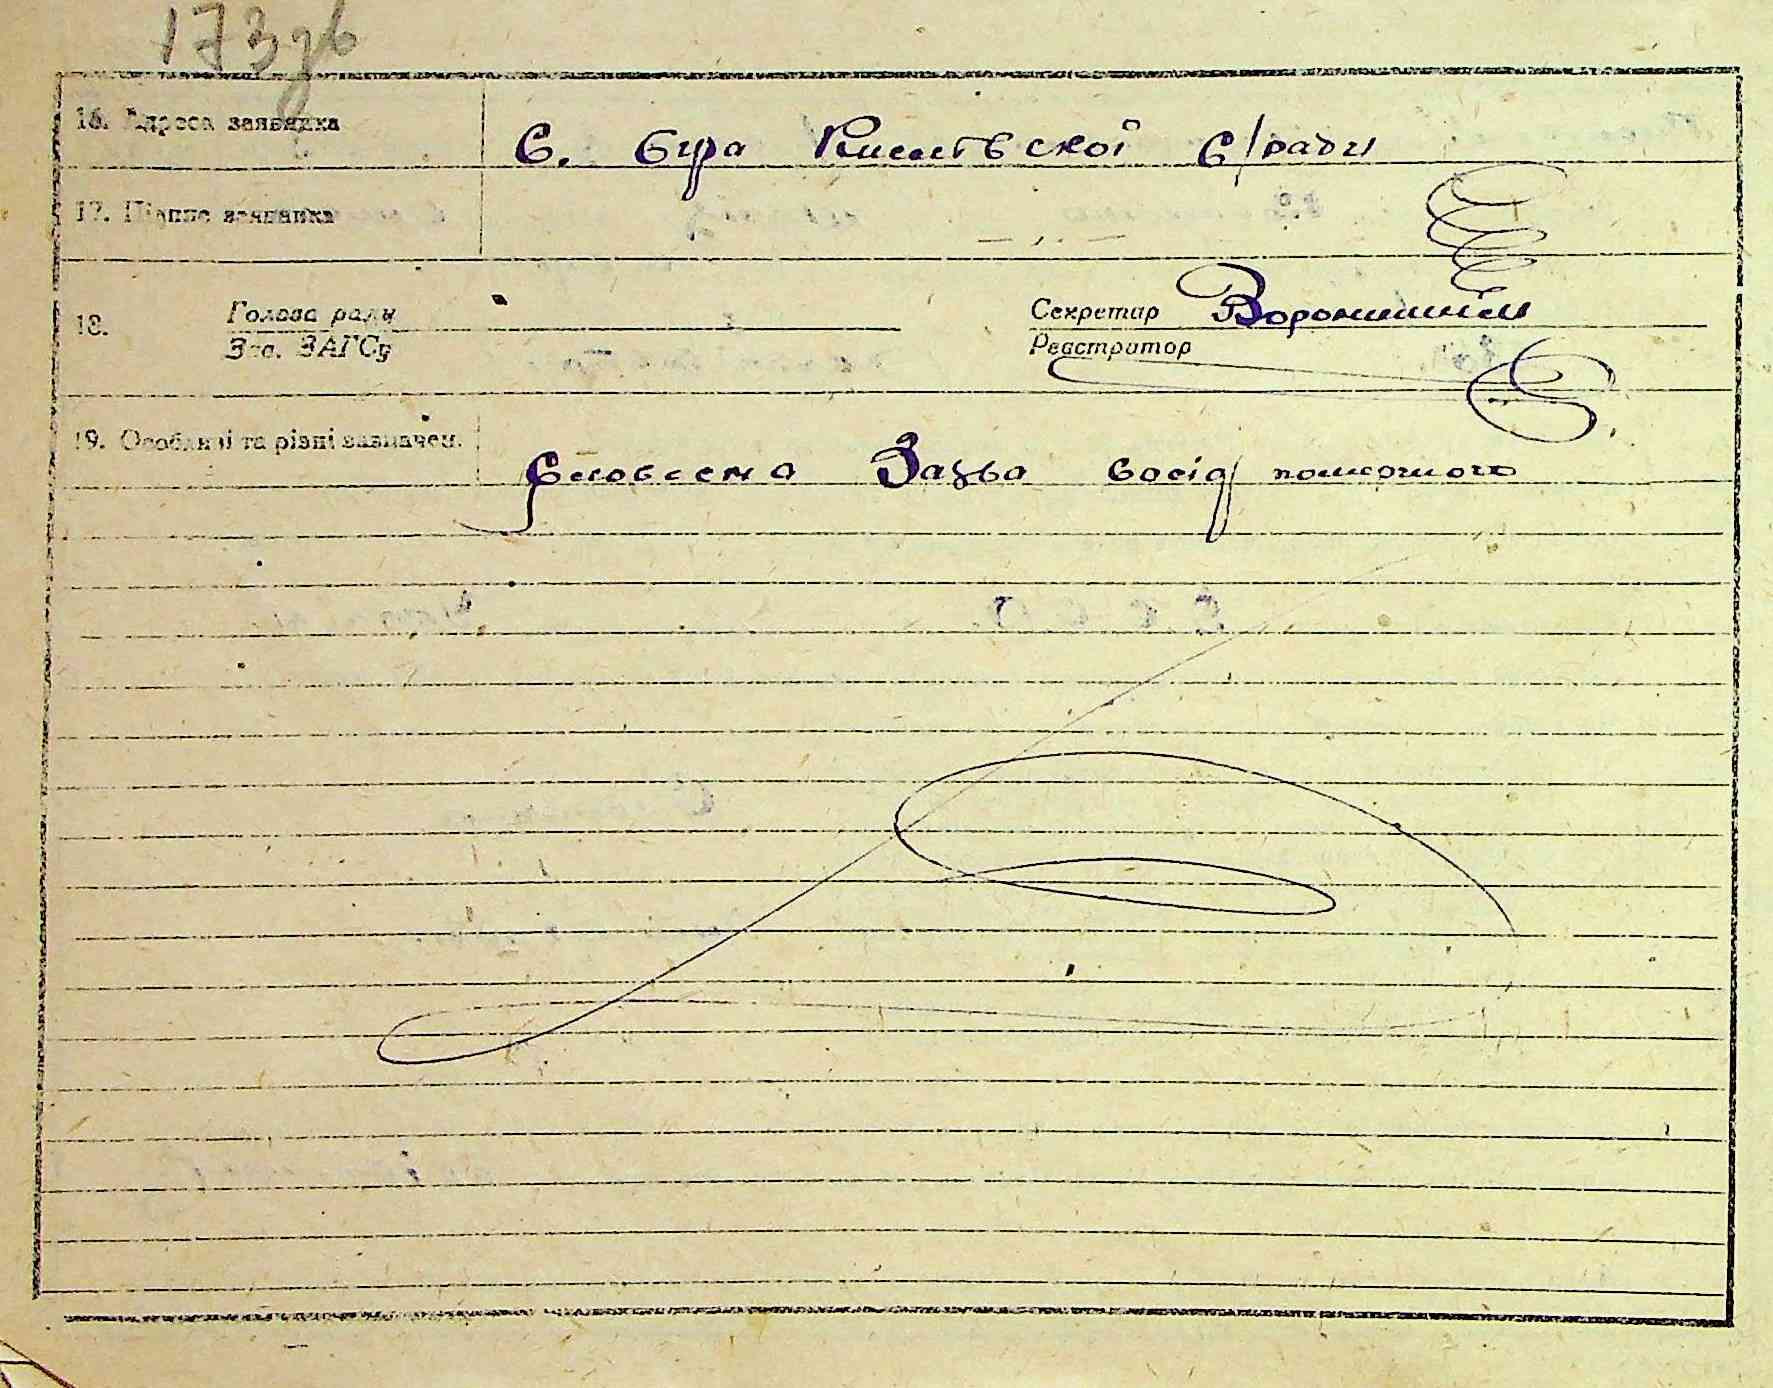 173зв
16. Адреса заявника
С. Сура Кисилівської С/ради
17. Підпис заявника
— „ —
18. Голова ради
Зав. ЗАГСу
Секретар
Реєстратор
19. Особливі та різні зазначен.
Словесна Заява сосід помершого